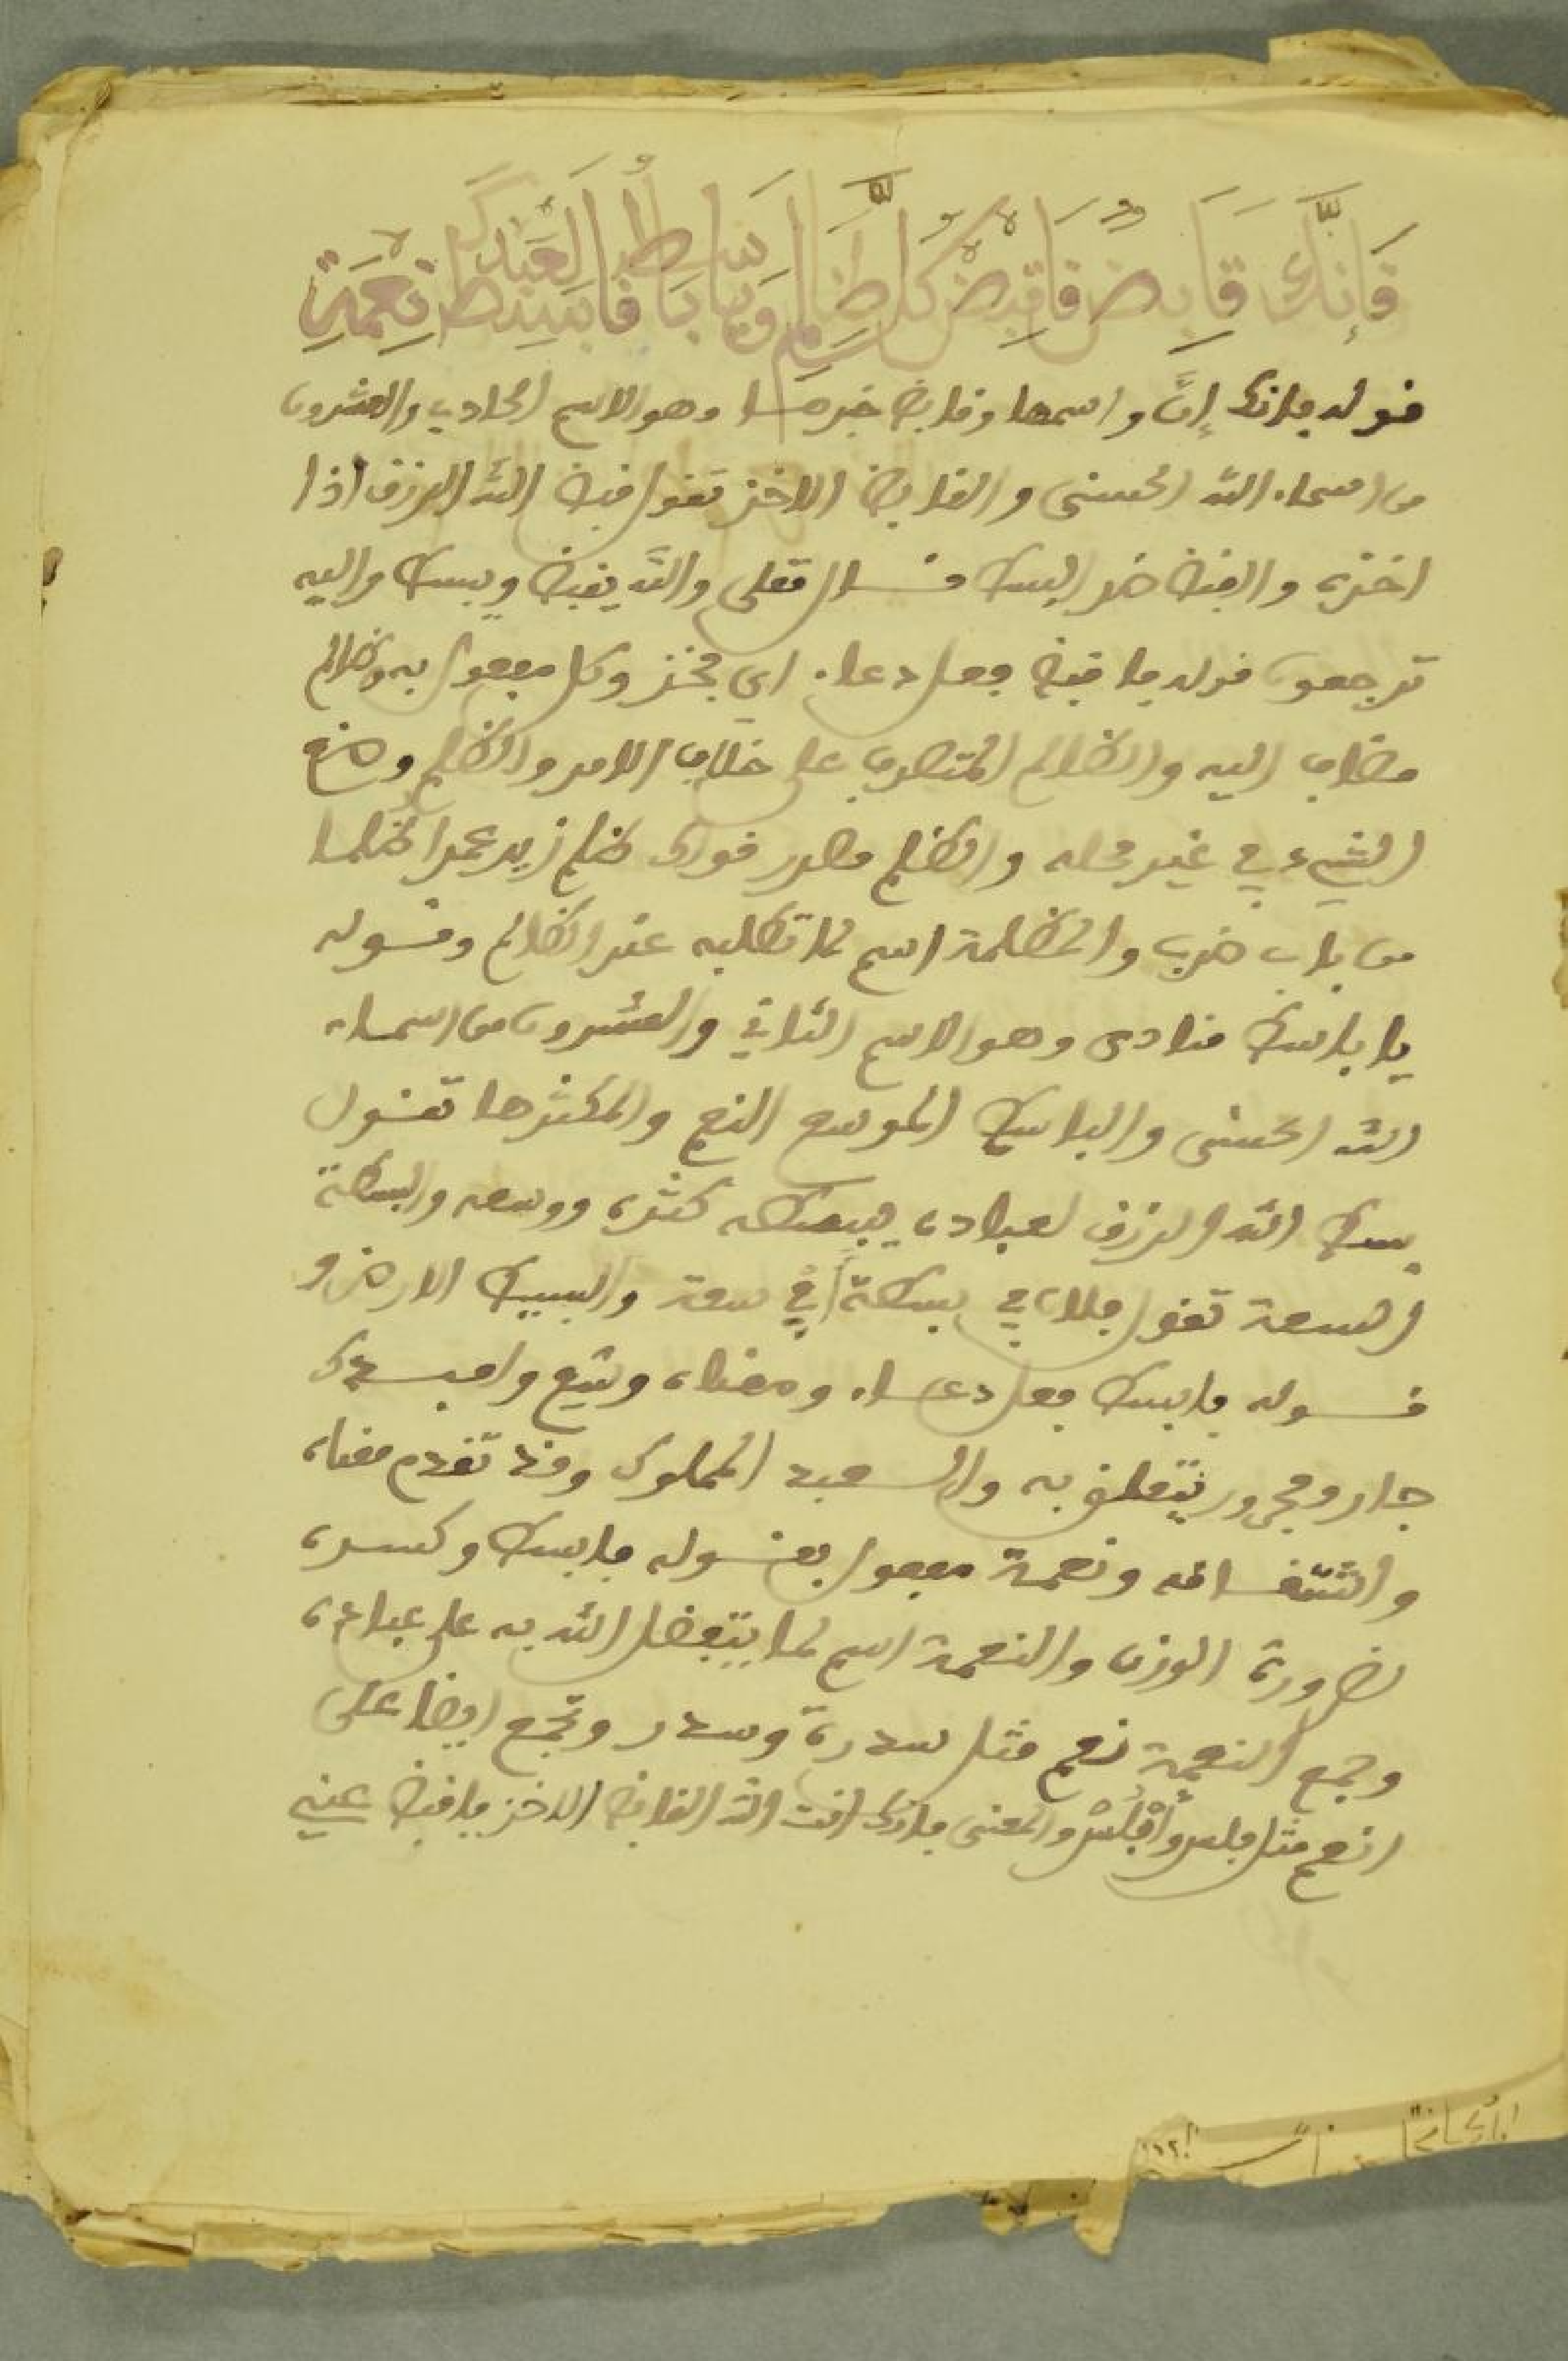 فَإِنَّكَ قَابِضٌ فَاقْبِضْ كُلَّ ظَالِمٍ وَيَا بَاسِطُ فَابْسُطْ لِعَبْدِكَ نِعْمَةِ
قوله فإنك إنّ واسمها وقابض خبرها وهو الاسم الحادي والعشرون
من اسماء الله الحسنى والقابض الاخذ تقول قبض الله الرزق اذا
اخذه والقبض ضد البسط قال تعلى والله يقبض ويبسط واليه
ترجعون قوله فاقبض فعل دعاء اي فخذ وكل مفعول به وظالم
مضاف اليه والظالم المتصرف على خلاف الامر والظلم وضع
الشيء في غير محله والظلم مصدر قولك ظلم زيد عمرا ظلما
من باب ضرب والمظلمة اسم لما تطلبه عند الظالم وقوله
يا باسط منادى وهو الاسم الثاني والعشرون من اسماء
الله الحسنى والباسط الموسع النعم والمكثرها تقول
بسط الله الرزق لعباده يبسطه كثره ووسعه والبسطة
السعة تقول فلان في بسطة اي في سعة والبسيط الارض و
قوله فابسط فعل دعاء ومعناه وسع و لعبدك
جار ومجرور يتعلق به والعبد المملوك وقد تقدم معناه
واشتقاقه ونعمة مفعول بقوله فابسط وكسره
لضرورة الوزن والنعمة اسم لما يتفضل الله به على عباده
وجمع النعمة نعم مثل سدرة وسدر وتجمع ايضا على
انعم مثل فلس وأفلُس والمعنى فانك انت الله القابض الاخذ فاقبض عني